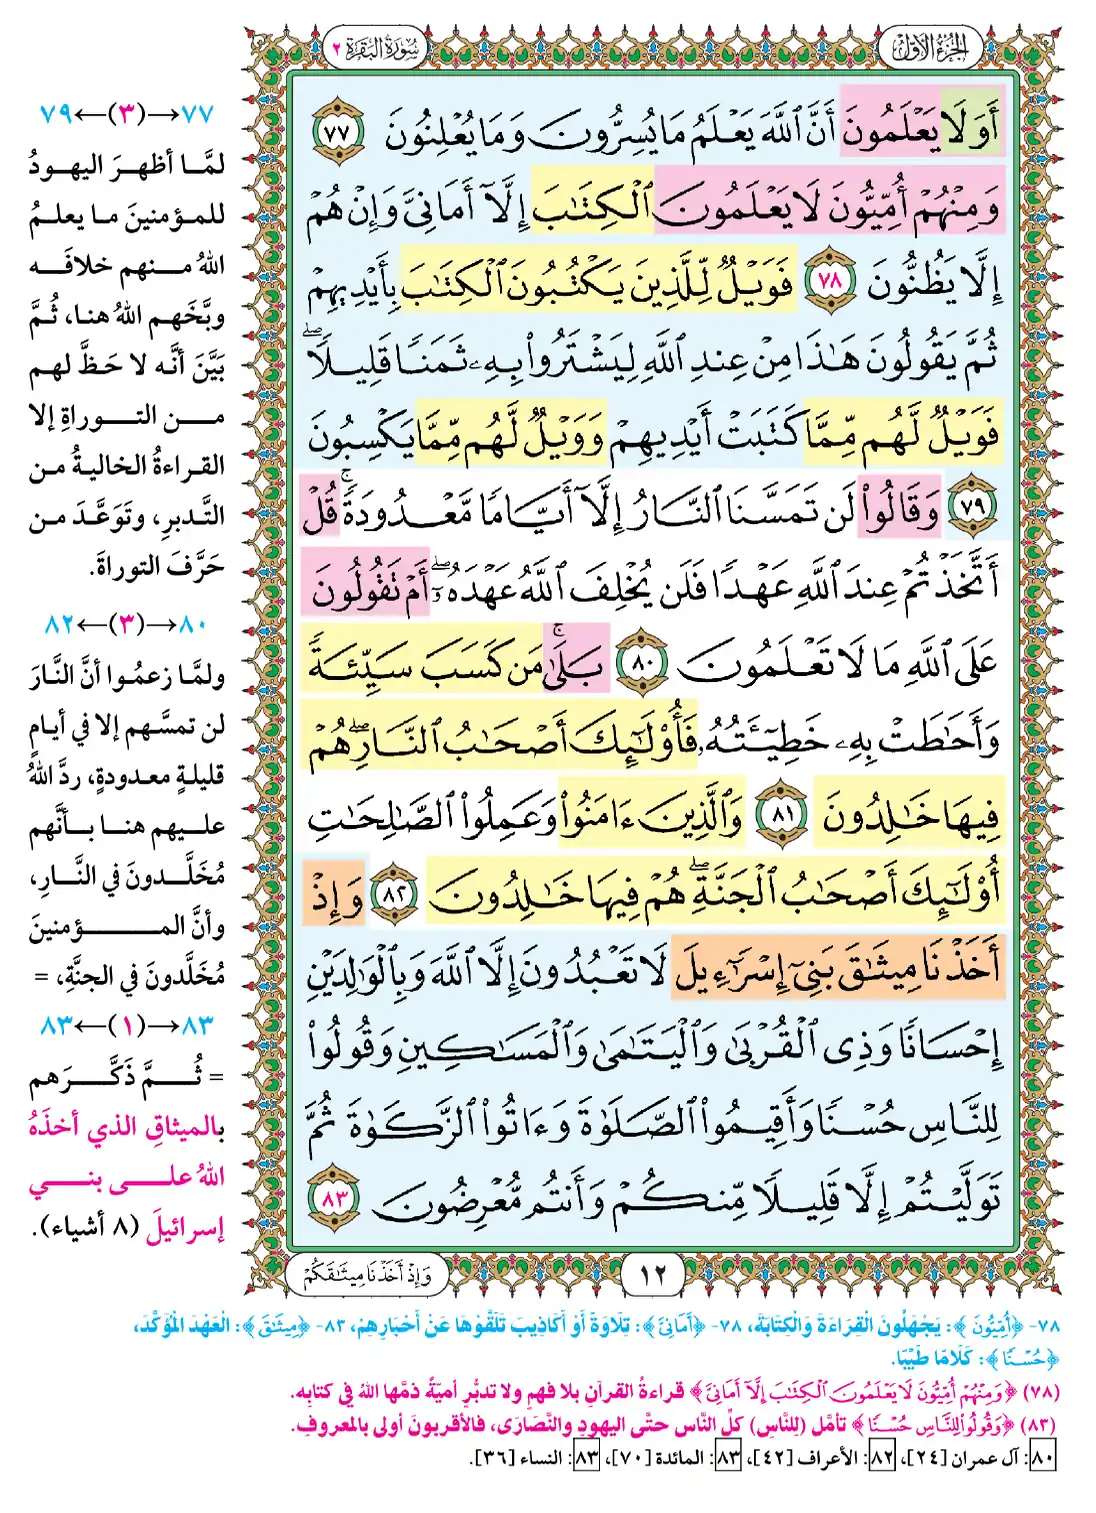 الجزء الأول
سورة البقرة ٢
أَوَلَا يَعْلَمُونَ أَنَّ ٱللَّهَ يَعْلَمُ مَا يُسِرُّونَ وَمَا يُعْلِنُونَ ٧٧
وَمِنْهُمْ أُمِّيُّونَ لَا يَعْلَمُونَ ٱلْكِتَـٰبَ إِلَّآ أَمَانِىَّ وَإِنْ هُمْ
إِلَّا يَظُنُّونَ ٧٨ فَوَيْلٌ لِّلَّذِينَ يَكْتُبُونَ ٱلْكِتَـٰبَ بِأَيْدِيهِمْ
ثُمَّ يَقُولُونَ هَـٰذَا مِنْ عِندِ ٱللَّهِ لِيَشْتَرُوا۟ بِهِۦ ثَمَنًا قَلِيلًا ۖ
فَوَيْلٌ لَّهُم مِّمَّا كَتَبَتْ أَيْدِيهِمْ وَوَيْلٌ لَّهُم مِّمَّا يَكْسِبُونَ
٧٩ وَقَالُوا۟ لَن تَمَسَّنَا ٱلنَّارُ إِلَّآ أَيَّامًا مَّعْدُودَةً ۚ قُلْ
أَتَّخَذْتُمْ عِندَ ٱللَّهِ عَهْدًا فَلَن يُخْلِفَ ٱللَّهُ عَهْدَهُۥٓ ۖ أَمْ تَقُولُونَ
عَلَى ٱللَّهِ مَا لَا تَعْلَمُونَ ٨٠ بَلَىٰ ۚ مَن كَسَبَ سَيِّئَةً
وَأَحَـٰطَتْ بِهِۦ خَطِيٓـَٔتُهُۥ فَأُو۟لَـٰٓئِكَ أَصْحَـٰبُ ٱلنَّارِ ۖ هُمْ
فِيهَا خَـٰلِدُونَ ٨١ وَٱلَّذِينَ ءَامَنُوا۟ وَعَمِلُوا۟ ٱلصَّـٰلِحَـٰتِ
أُو۟لَـٰٓئِكَ أَصْحَـٰبُ ٱلْجَنَّةِ ۖ هُمْ فِيهَا خَـٰلِدُونَ ٨٢ وَإِذْ
أَخَذْنَا مِيثَـٰقَ بَنِىٓ إِسْرَٰٓءِيلَ لَا تَعْبُدُونَ إِلَّا ٱللَّهَ وَبِٱلْوَٰلِدَيْنِ
إِحْسَانًا وَذِى ٱلْقُرْبَىٰ وَٱلْيَتَـٰمَىٰ وَٱلْمَسَـٰكِينِ وَقُولُوا۟
لِلنَّاسِ حُسْنًا وَأَقِيمُوا۟ ٱلصَّلَوٰةَ وَءَاتُوا۟ ٱلزَّكَوٰةَ ثُمَّ
تَوَلَّيْتُمْ إِلَّا قَلِيلًا مِّنكُمْ وَأَنتُم مُّعْرِضُونَ ٨٣
١٢
وَإِذْ أَخَذْنَا مِيثَـٰقَكُمْ
٧٧→(٣)←٧٩
لمَّا أظهرَ اليهودُ
للمؤمنينَ ما يعلمُ
اللهُ منهم خلافَه
وبَّخَهم اللهُ هنا، ثُمَّ
بَيَّنَ أنَّه لا حَظَّ لهم
من التوراةِ إلا
القراءةُ الخاليةُ من
التَّدبرِ، وتَوَعَّدَ من
حَرَّفَ التوراةَ.
٨٠→(٣)←٨٢
ولمَّا زعمُوا أنَّ النَّارَ
لن تمسَّهم إلا في أيامٍ
قليلةٍ معدودةٍ، ردَّ اللهُ
عليهم هنا بأنَّهم
مُخَلَّدونَ في النَّارِ،
وأنَّ المؤمنينَ
مُخَلَّدونَ في الجنَّةِ، =
٨٣→(١)←٨٣
= ثُمَّ ذَكَّرَهم
بالميثاقِ الذي أخذَهُ
اللهُ على بني
إسرائيلَ (٨ أشياء).
٧٨- ﴿أُمِّيُّونَ﴾: يَجْهَلُونَ القِرَاءَةَ وَالكِتَابَةَ، ٧٨- ﴿أَمَانِىَّ﴾: تِلَاوَةً أَوْ أَكَاذِيبَ تَلَقَّوْهَا عَنْ أَحْبَارِهِمْ، ٨٣- ﴿مِيثَـٰقَ﴾: العَهْدَ المُؤَكَّدَ،
﴿حُسْنًا﴾: كَلَامًا طَيِّبًا.
(٧٨) ﴿وَمِنْهُمْ أُمِّيُّونَ لَا يَعْلَمُونَ ٱلْكِتَـٰبَ إِلَّآ أَمَانِىَّ﴾ قراءةُ القرآنِ بلا فهمٍ ولا تدبُّرٍ أميَّةٌ ذمَّها اللهُ في كتابِه.
(٨٣) ﴿وَقُولُوا۟ لِلنَّاسِ حُسْنًا﴾ تأمَّل (لِلنَّاسِ) كلِّ النَّاس حتَّى اليهودِ والنَّصَارَى، فالأقربونَ أولى بالمعروفِ.
٨٠: آل عمران [٢٤]، ٨٢: الأعراف [٤٢]، ٨٣: المائدة [٧٠]، ٨٣: النساء [٣٦].